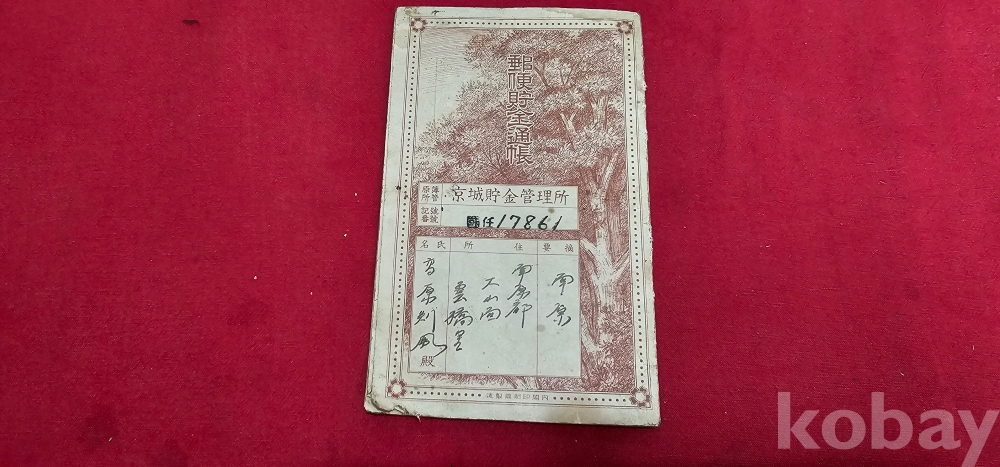 郵便貯金通帳
原簿所管
京城貯金管理所
記號番號
國任17861
摘要
住所
氏名
南原
南原郡
大山面
雲橋里
高原判風殿
內閣印刷局製造
kobay